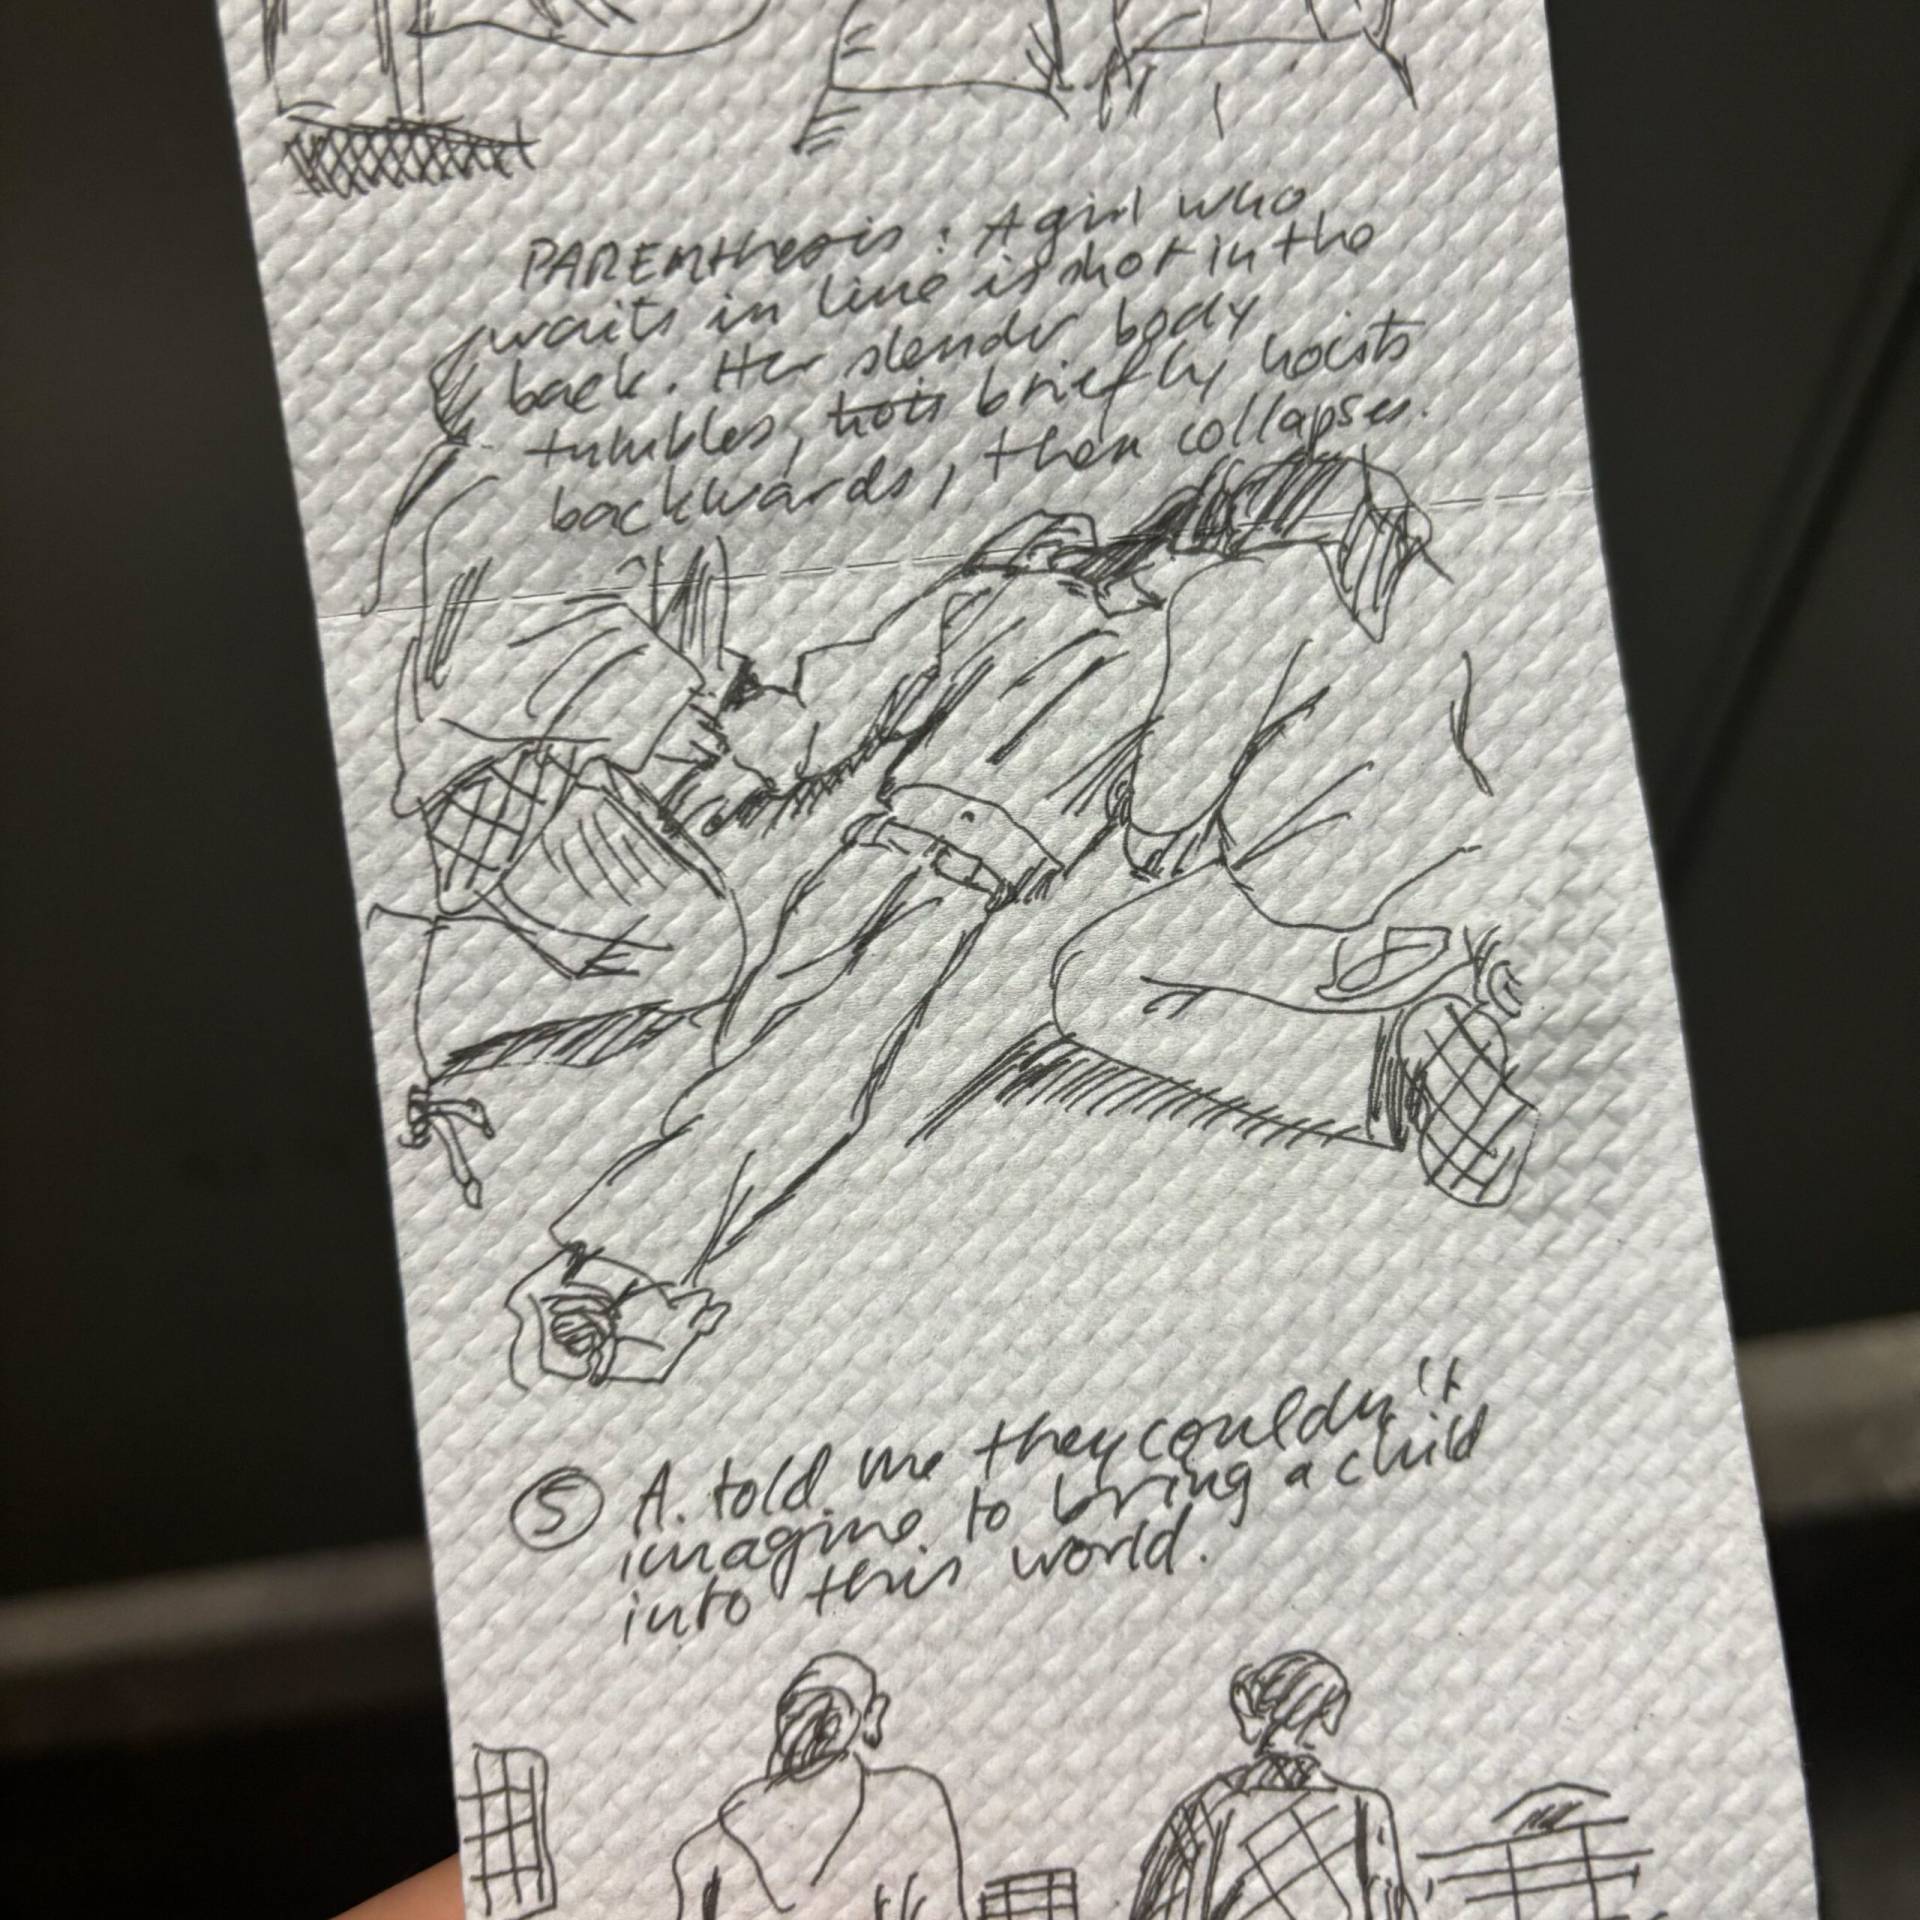 PARENthesis: A girl who
waits in line is shot in the
back. Her slender body
tumbles, hois briefly hoists
backwards, then collapses.
5 A. told me they couldn't
imagine to bring a child
into this world.